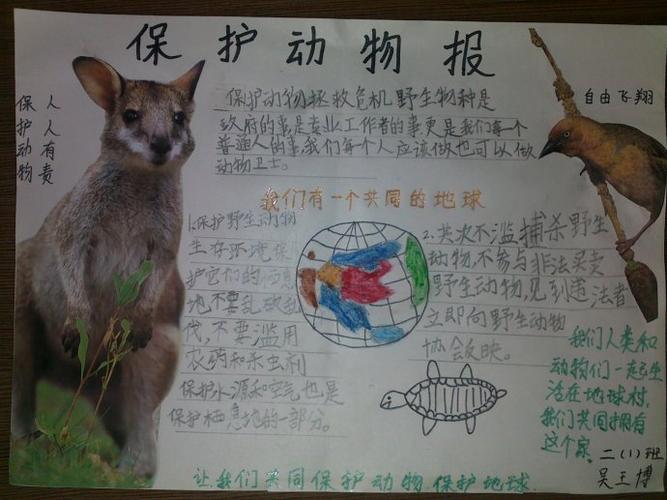 保护动物报
保护动物
人人有责
自由飞翔
保护动物拯救危机野生物种是
政府的事是专业工作者的事更是我们每一个
普通人的事,我们每个人应该做也可以做
动物卫士。
我们有一个共同的地球
1.保护野生动物
生存环境保
护它们的栖息
地不要乱砍乱
伐,不要滥用
农药和杀虫剂
保护水源和空气也是
保护栖息地的一部分。
2.其次不滥捕杀野生
动物,不参与非法买卖
野生动物,见到违法者
立即向野生动物
协会反映。
我们人类和
动物们一起生
活在地球村,
我们共同拥有
这个家
二(1)班
吴王博
让我们共同保护动物保护地球